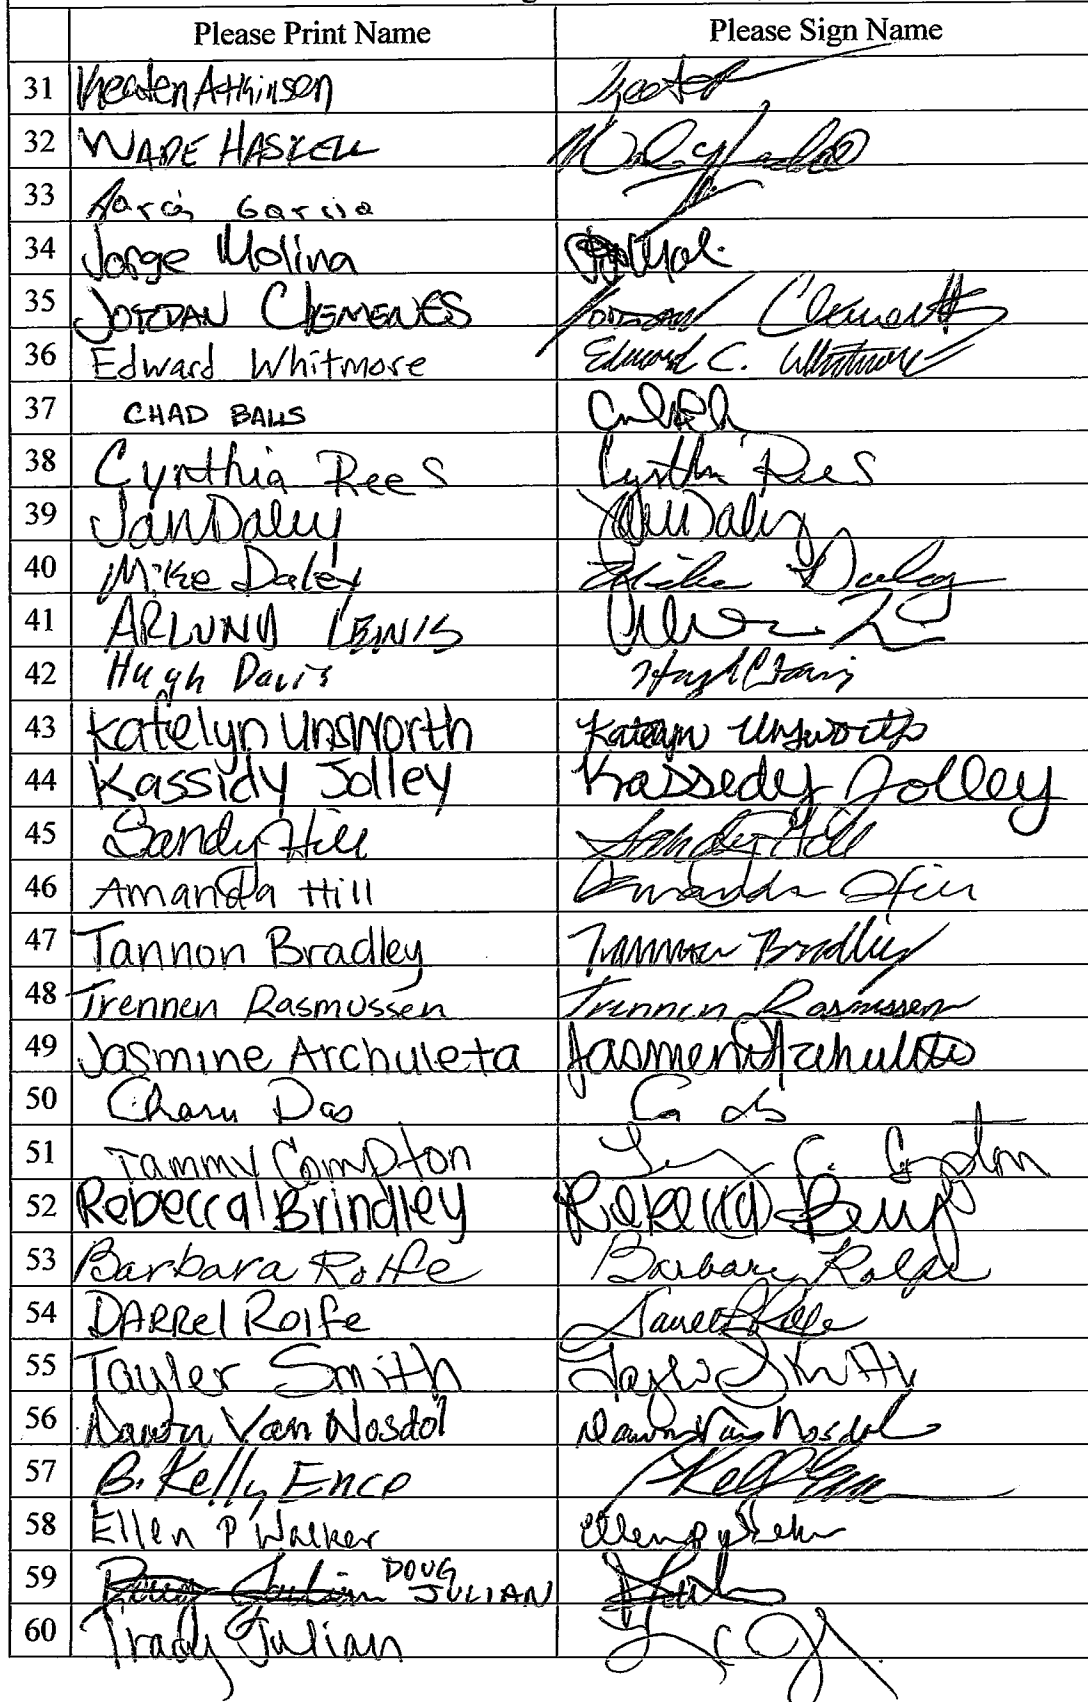 Please Print Name Please Sign Name
31 Keaten Atkinson
32 WADE HASKELL
33 Garcia
34 Jorge Molina
35 JORDAN CLEMENES Clements
36 Edward Whitmore Edward C. Whitmore
37 CHAD BALLS
38 Cynthia Rees Cynthia Rees
39 Jan Daley Jan Daley
40 Mike Daley Mike Daley
41 ARLUND LEWIS
42 Hugh Davis Hugh C Davis
43 Katelyn Unsworth Katelyn Unsworth
44 Kassidy Jolley Kassedy Jolley
45 Sandy Hill Sandy Hill
46 Amanda Hill Amanda Hill
47 Tannon Bradley Tannon Bradley
48 Trennen Rasmussen Trennen Rasmussen
49 Jasmine Archuleta Jasmen Archuleta
50 Charu Das
51 Tammy Compton
52 Rebecca Brindley Rebecca
53 Barbara Rolfe Barbara Rolfe
54 DARREL Rolfe Darrel Rolfe
55 Tayler Smith Tayler Smith
56 Dawn Van Nosdol Dawn Van Nosdol
57 B. Kelly Ence
58 Ellen P Walker
59 DOUG JULIAN
60 Tracy Julian